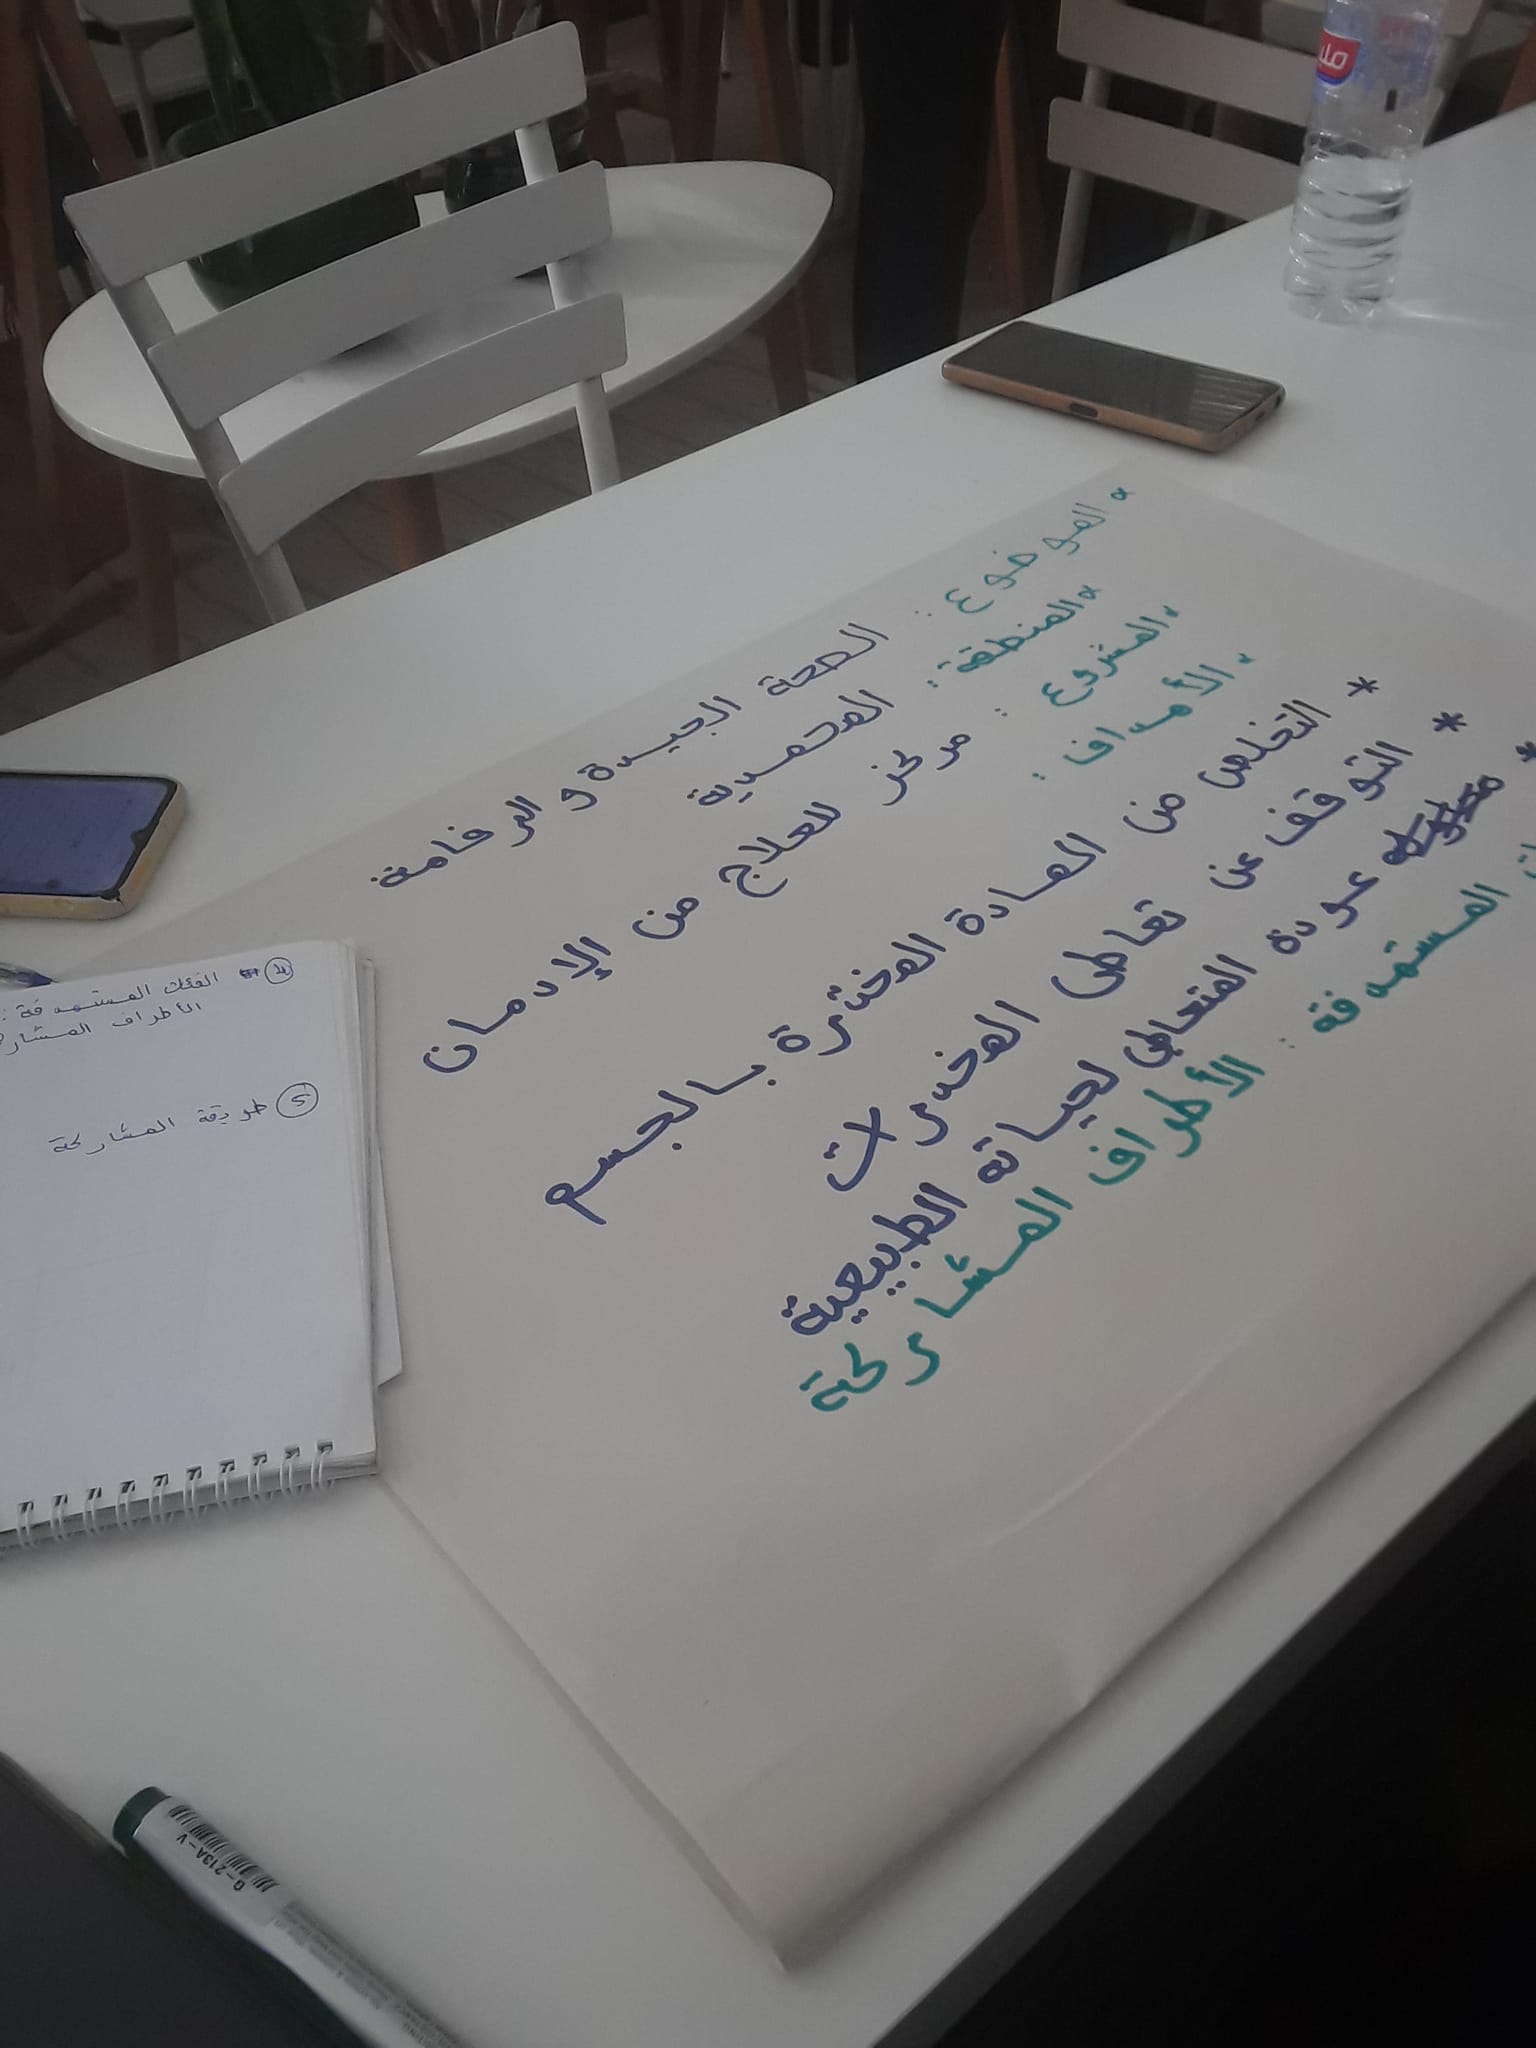 * الموضوع : الصحة الجيدة و الرفاهية
* المنطقة : المحمدية
* المشروع : مركز للعلاج من الإدمان
* الأهداف :
* التخلص من العادة المضرة بالجسم
* التوقف عن تعاطي المخدرات
* عودة المتعاطي لحياته الطبيعية
المستهدفة : الأطراف المشاركة
4 الفئات المستهدفة :
الأطراف
5 طريقة المشاركة
G-213A-V